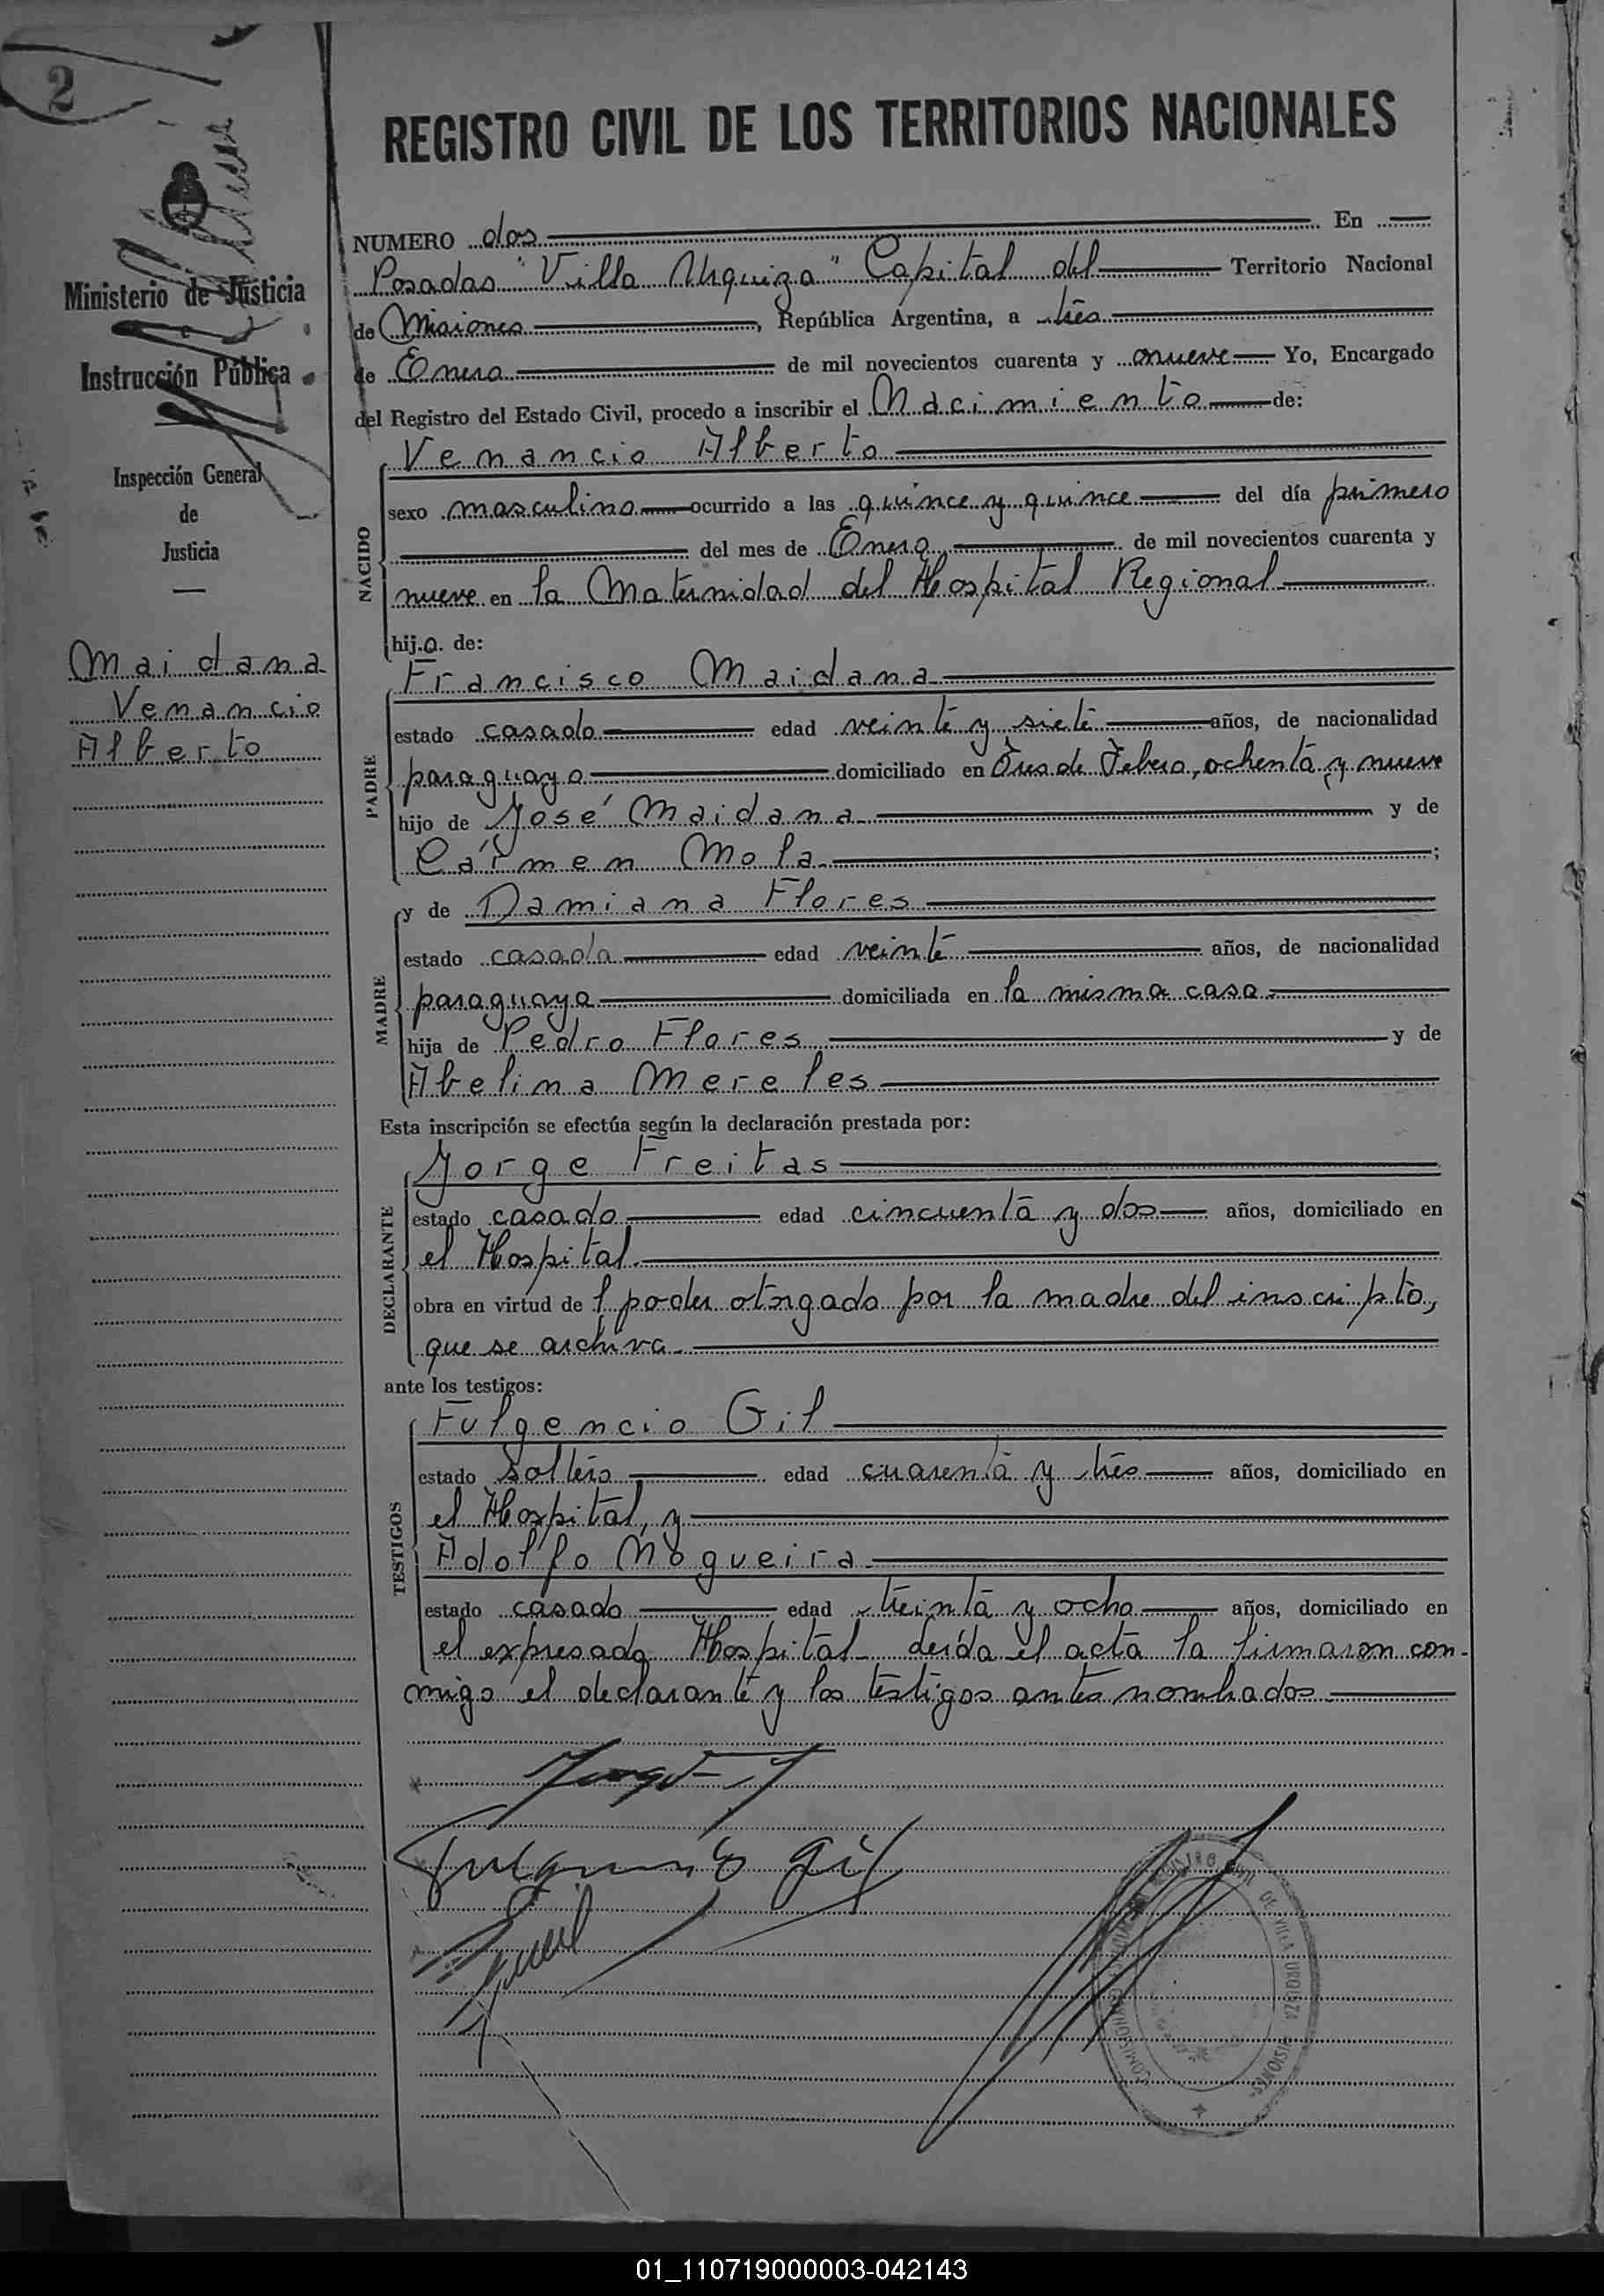 2
REGISTRO CIVIL DE LOS TERRITORIOS NACIONALES
Ministerio de Justicia
e
Instrucción Pública
Inspección General
de
Justicia
Maidana
Venancio
Alberto
NUMERO dos En
Posadas "Villa Urquiza" Capital del Territorio Nacional
de Misiones, República Argentina, a tres
de Enero de mil novecientos cuarenta y nueve Yo, Encargado
del Registro del Estado Civil, procedo a inscribir el Nacimiento de:
NACIDO
Venancio Alberto
sexo masculino ocurrido a las quince y quince del día primero
del mes de Enero, de mil novecientos cuarenta y
nueve en la Maternidad del Hospital Regional
hijo de:
PADRE
Francisco Maidana
estado casado edad veinte y siete años, de nacionalidad
paraguayo domiciliado en Tres de Febrero, ochenta y nueve
hijo de José Maidana y de
Cármen Mola ;
MADRE
y de Damiana Flores
estado casada edad veinte años, de nacionalidad
paraguaya domiciliada en la misma casa
hija de Pedro Flores y de
Abelina Mereles
Esta inscripción se efectúa según la declaración prestada por:
DECLARANTE
Jorge Freitas
estado casado edad cincuenta y dos años, domiciliado en
el Hospital.
obra en virtud del poder otorgado por la madre del inscripto,
que se archiva.
ante los testigos:
TESTIGOS
Fulgencio Gil
estado soltero edad cuarenta y tres años, domiciliado en
el Hospital, y
Adolfo Nogueira
estado casado edad treinta y ocho años, domiciliado en
el expresado Hospital leída el acta la firmaron con-
migo el declarante y los testigos antes nombrados
Fulgencio Gil
REGISTRO CIVIL DE VILLA URQUIZA MISIONES
01_110719000003-042143